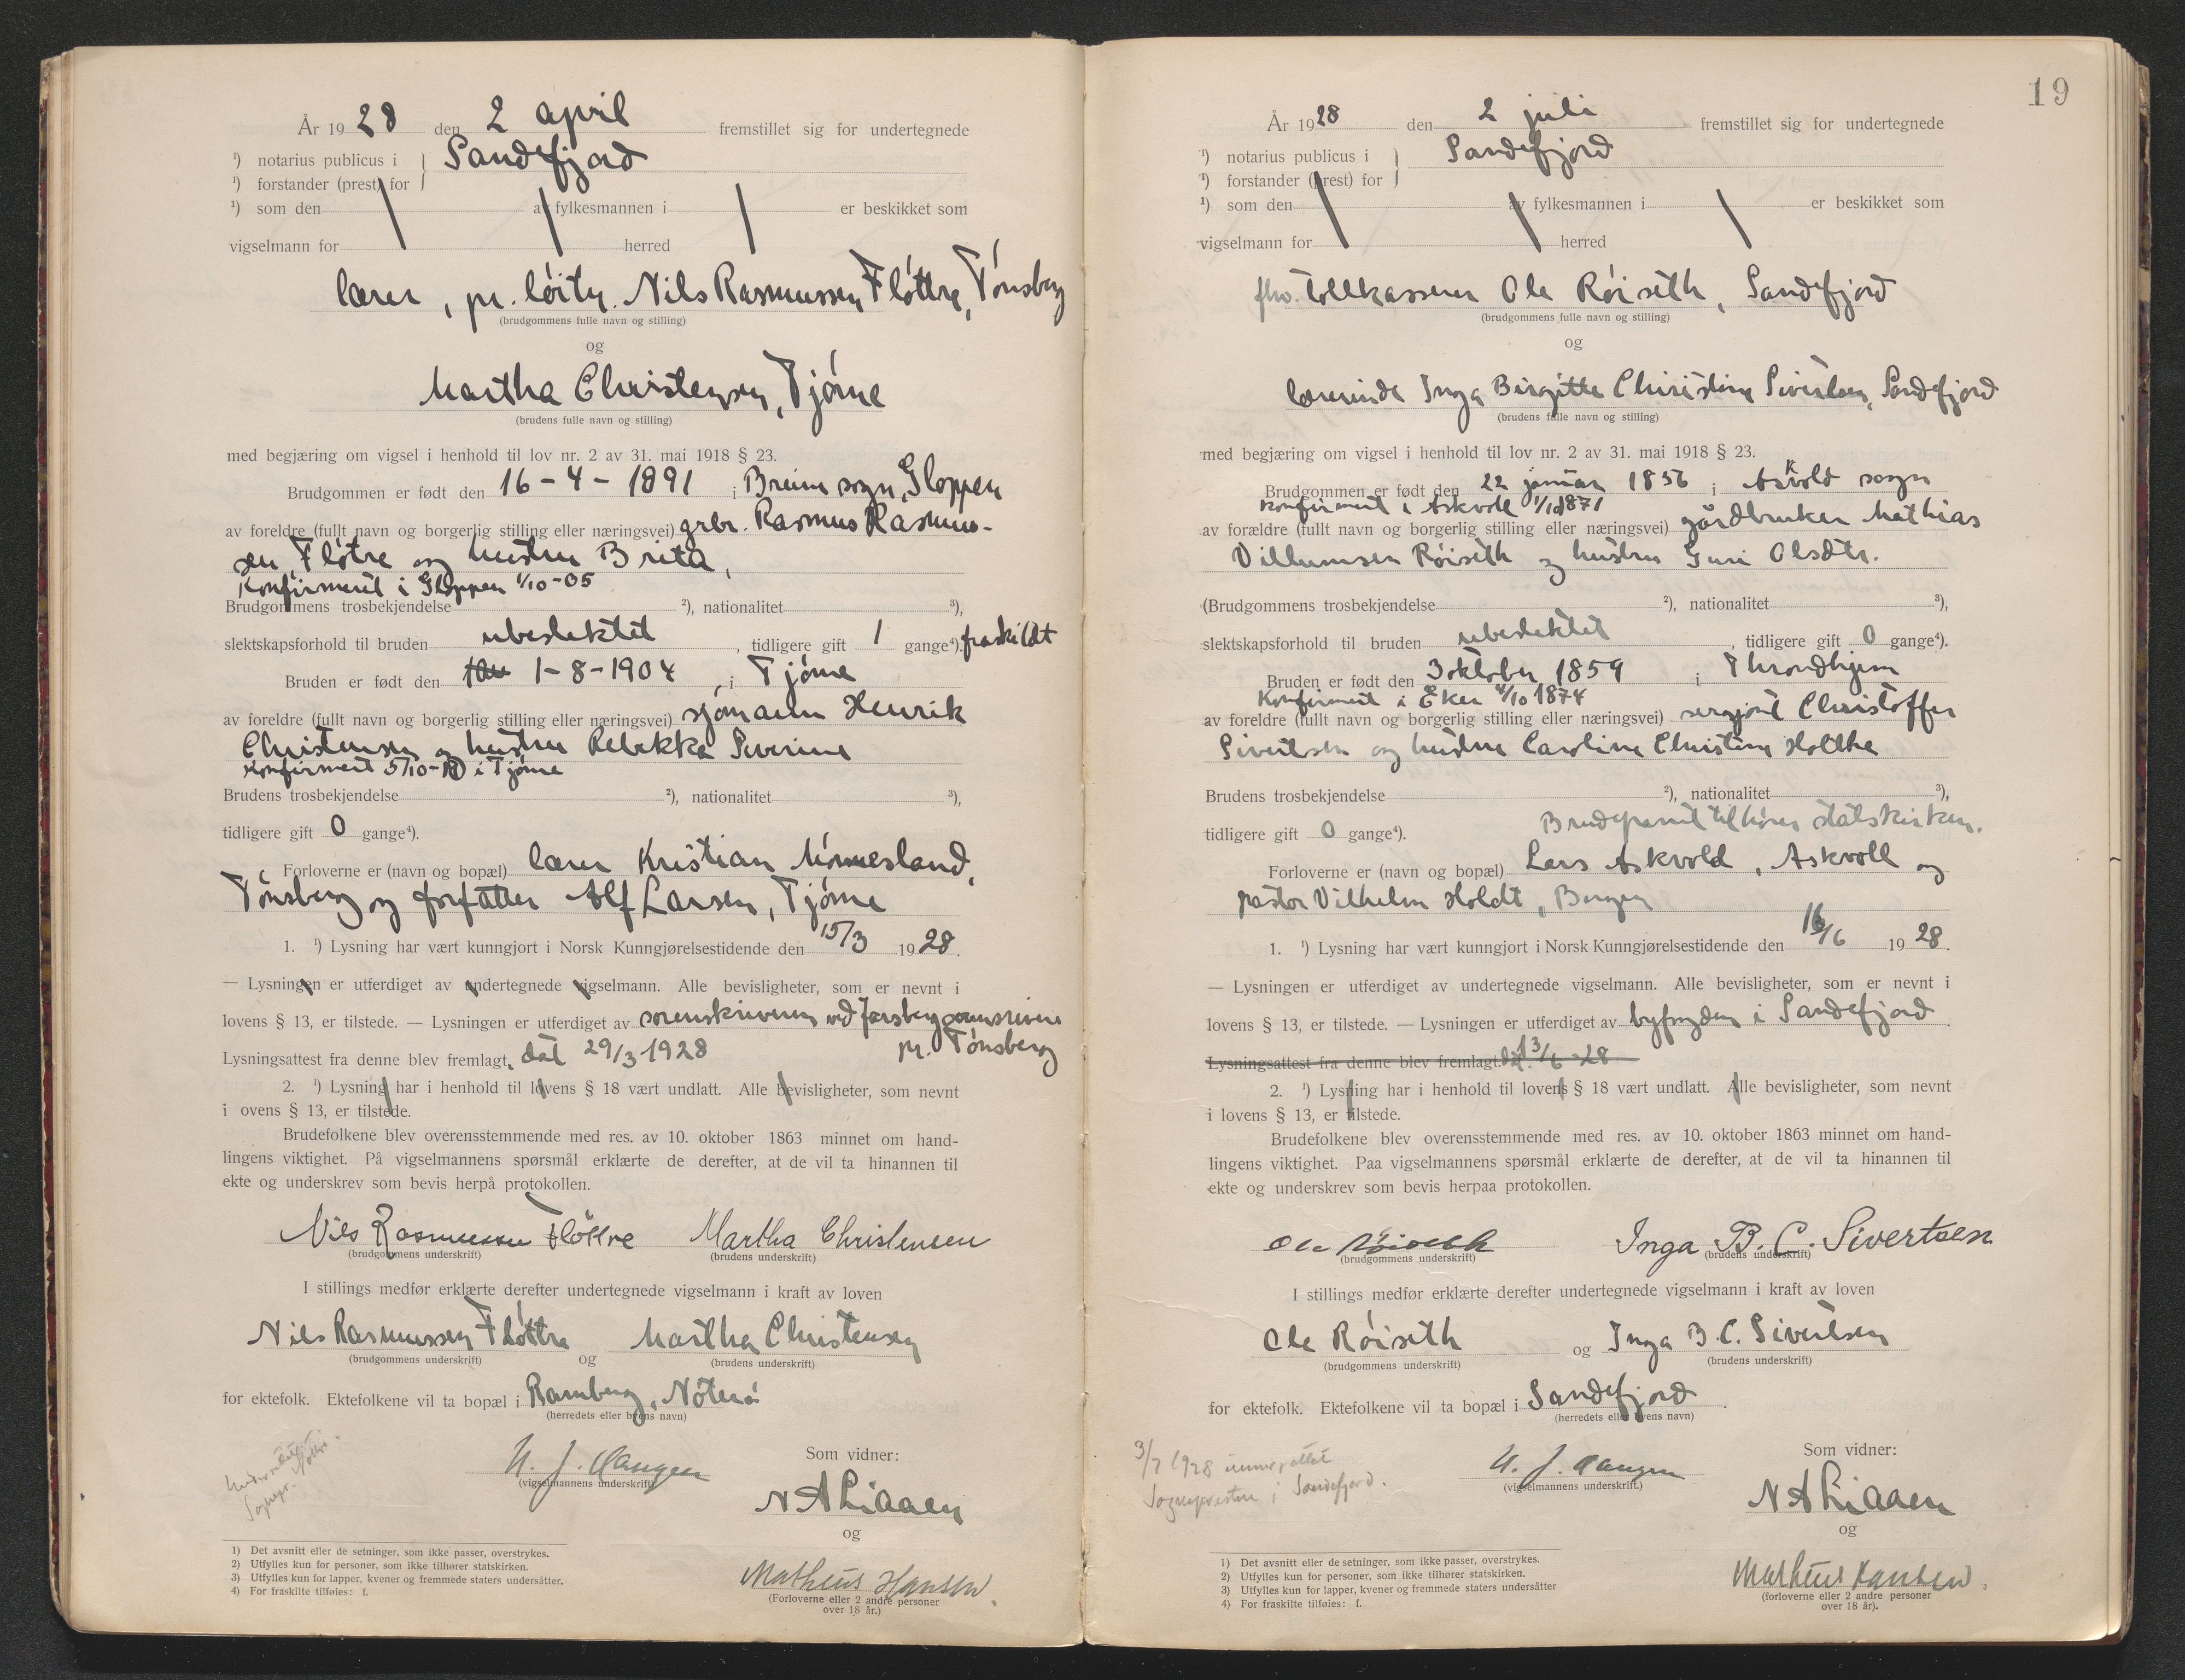 År 1928 den 2 april fremstillet sig for undertegnede
¹) notarius publicus i } Sandefjord
¹) forstander (prest) for
¹) som den av fylkesmannen i er beskikket som
vigselmann for herred
lærer, pr. løitn. Nils Rasmussen Fløttre, Tønsberg
(brudgommens fulle navn og stilling)
og
Martha Christensen, Tjøme
(brudens fulle navn og stilling)
med begjæring om vigsel i henhold til lov nr. 2 av 31. mai 1918 § 23.
Brudgommen er født den 16-4-1891 i Breim sogn, Gloppen
av foreldre (fullt navn og borgerlig stilling eller næringsvei) grbr. Rasmus Rasmus-
sen Fløtre og hustru Brita,
Konfirmert i Gloppen 1/10-05
Brudgommens trosbekjendelse ²), nationalitet ³),
slektskapsforhold til bruden ubeslektet, tidligere gift 1 gange⁴). fraskildt
Bruden er født den 1-8-1904, i Tjøme
av foreldre (fullt navn og borgerlig stilling eller næringsvei) sjømann Henrik
Christensen og hustru Rebekka Severine
Konfirmert 5/10-19 i Tjøme
Brudens trosbekjendelse ²), nationalitet ³),
tidligere gift 0 gange⁴).
Forloverne er (navn og bopæl) lærer Kristian Mønnesland,
Tønsberg og forfatter Alf Larsen, Tjøme
1. ¹) Lysning har vært kunngjort i Norsk Kunngjørelsestidende den 15/3 1928.
— Lysningen er utferdiget av undertegnede vigselmann. Alle bevisligheter, som er nevnt i
lovens § 13, er tilstede. — Lysningen er utferdiget av sorenskriveren ved Jarsberg sorenskriveri
Lysningsattest fra denne blev fremlagt, dat 29/3-1928 pr. Tønsberg
2. ¹) Lysning har i henhold til lovens § 18 vært undlatt. Alle bevisligheter, som nevnt
i ovens § 13, er tilstede.
Brudefolkene blev overensstemmende med res. av 10. oktober 1863 minnet om hand-
lingens viktighet. På vigselmannens spørsmål erklærte de derefter, at de vil ta hinannen til
ekte og underskrev som bevis herpå protokollen.
Nils Rasmussen Fløttre Martha Christensen
(brudgommens underskrift) (brudens underskrift)
I stillings medfør erklærte derefter undertegnede vigselmann i kraft av loven
Nils Rasmussen Fløttre og Martha Christensen
(brudgommens underskrift) (brudens underskrift)
for ektefolk. Ektefolkene vil ta bopæl i Ramberg, Nøterø
(herredets eller byens navn)
Som vidner:
(vigselmannens underskrift)
N A Liaaen
og
Matheus Hansen.
(Forloverne eller 2 andre personer
over 18 år.)
1) Det avsnitt eller de setninger, som ikke passer, overstrykes.
2) Utfylles kun for personer, som ikke tilhører statskirken.
3) Utfylles kun for lapper, kvener og fremmede staters undersåtter.
4) For fraskilte tilføies: f.
19
År 1928 den 2 juli fremstillet sig for undertegnede
¹) notarius publicus i } Sandefjord
¹) forstander (prest) for
¹) som den av fylkesmannen i er beskikket som
vigselmann for herred
fhv. tollkasserer Ole Røiseth, Sandefjord
(brudgommens fulle navn og stilling)
og
lærerinde Inga Birgitte Christine Sivertsen, Sandefjord
(brudens fulle navn og stilling)
med begjæring om vigsel i henhold til lov nr. 2 av 31. mai 1918 § 23.
Brudgommen er født den 22 januar 1856 i Askvold sogn
Konfirmert i Askvoll 1/10 1871
av forældre (fullt navn og borgerlig stilling eller næringsvei) gårdbruker Mathias
Villumsen Røiseth og hustru Guri Olsdtr.
(Brudgommens trosbekjendelse ²), nationalitet ³),
slektskapsforhold til bruden ubeslektet, tidligere gift 0 gange⁴).
Bruden er født den 3 oktober 1859 i Throndhjem
Konfirmert i Eker 4/10 1874
av foreldre (fullt navn og borgerlig stilling eller næringsvei) sergjant Christoffer
Sivertsen og hustru Caroline Christine Holthe
Brudens trosbekjendelse ²), nationalitet ³),
Brudeparret tilhører statskirken.
tidligere gift 0 gange⁴).
Forloverne er (navn og bopæl) Lars Askvold, Askvoll og
pastor Vilhelm Holdt, Bergen
1. ¹) Lysning har vært kunngjort i Norsk Kunngjørelsestidende den 16/6 1928.
— Lysningen er utferdiget av undertegnede vigselmann. Alle bevisligheter, som er nevnt i
lovens § 13, er tilstede. — Lysningen er utferdiget av byfogden i Sandefjord
Lysningsattest fra denne blev fremlagt. dat. 13/6-28
2. ¹) Lysning har i henhold til lovens § 18 vært undlatt. Alle bevisligheter, som nevnt
i lovens § 13, er tilstede.
Brudefolkene blev overensstemmende med res. av 10. oktober 1863 minnet om hand-
lingens viktighet. Paa vigselmannens spørsmål erklærte de derefter, at de vil ta hinannen til
ekte og underskrev som bevis herpaa protokollen.
Ole Røiseth Inga B. C. Sivertsen
(brudgommens underskrift) (brudens underskrift)
I stillings medfør erklærte derefter undertegnede vigselmann i kraft av loven
Ole Røiseth og Inga B. C. Sivertsen
(brudgommens underskrift) (brudens underskrift)
for ektefolk. Ektefolkene vil ta bopæl i Sandefjord.
(herredets eller byens navn)
3/7 1928 underrettet
Sognepresten i Sandefjord.
Som vidner:
(vigselmannens underskrift.)
N A Liaaen
og
Matheus Hansen.
(forloverne eller 2 andre personer
over 18 år).
1) Det avsnitt eller de setninger, som ikke passer, overstrykes.
2) Utfylles kun for personer, som ikke tilhører statskirken.
3) Utfylles kun for lapper, kvener og fremmede staters undersåtter
4) For fraskilte tilføies: f.